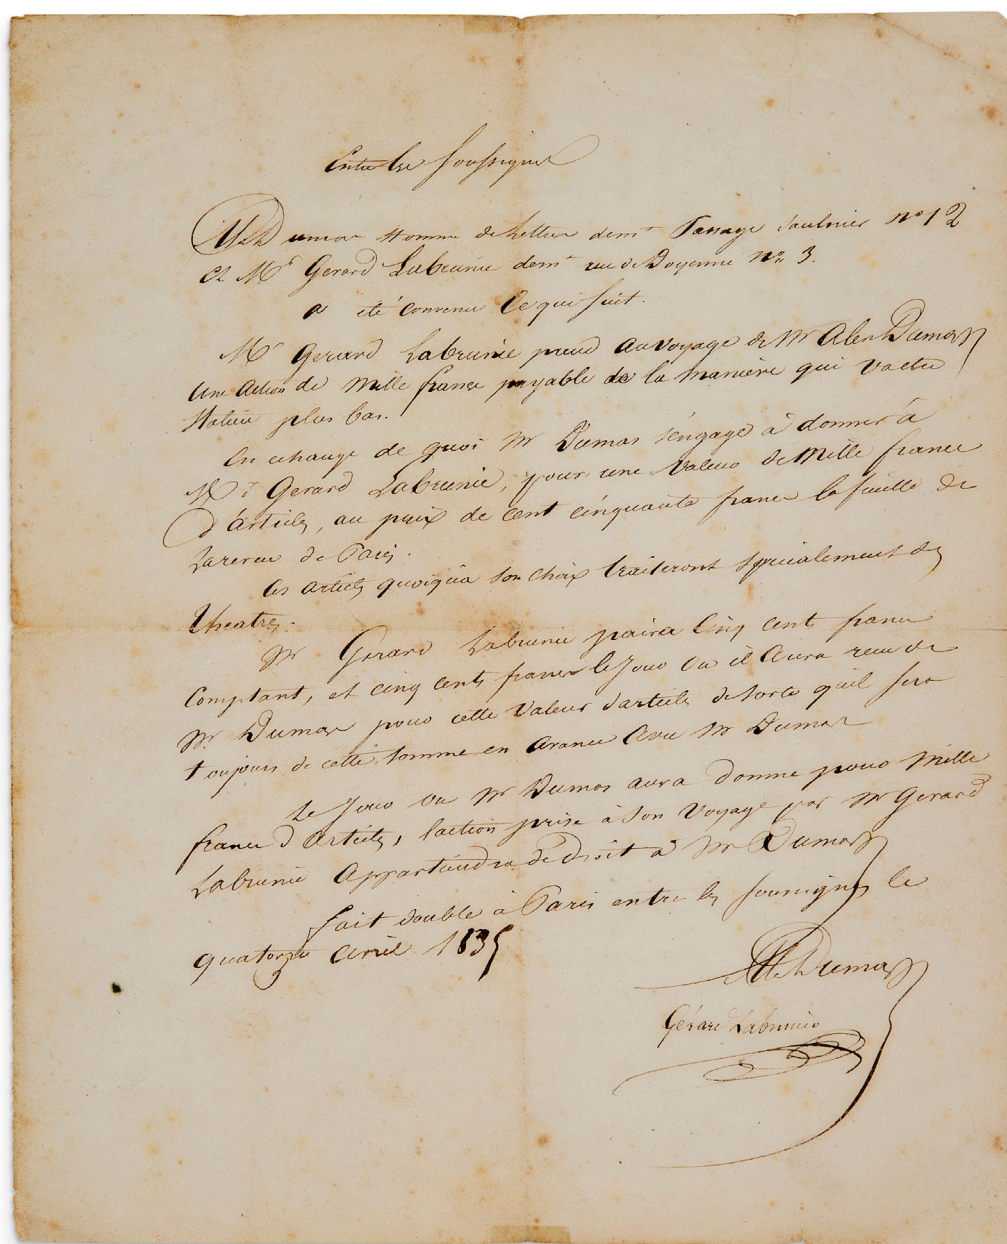 Entre les soussignés
Alex Dumas homme de lettres demt Passage Saulnier no 12
et Mr Gerard Labrunie demt rue du Doyenné no 3.
a été convenu ce qui suit.
Mr Gerard Labrunie prend au voyage de Mr Alex Dumas
une action de mille francs payable de la manière qui va etre
statuée plus bas.
En echange de quoi Mr Dumas s'engage à donner à
Mr Gerard Labrunie, pour une valeur de mille francs
d'articles, au prix de cent cinquante francs la feuille de
la revue de Paris.
Ces articles quoiqu'a son choix traiteront specialement des
theatres.
Mr Gerard Labrunie paira cinq cent francs
comptant, et cinq cents francs le jour ou il aura recu de
Mr Dumas pour cette valeur d'articles de sorte qu'il sera
toujours de cette somme en avance avec Mr Dumas
Le jour ou Mr Dumas aura donné pour mille
francs d'articles, l'action prise à son voyage par Mr Gerard
Labrunie appartiendra de droit à Mr Dumas
fait double à Paris entre les soussignés le
quatorze avril 1835
Alex Dumas
Gérard Labrunie